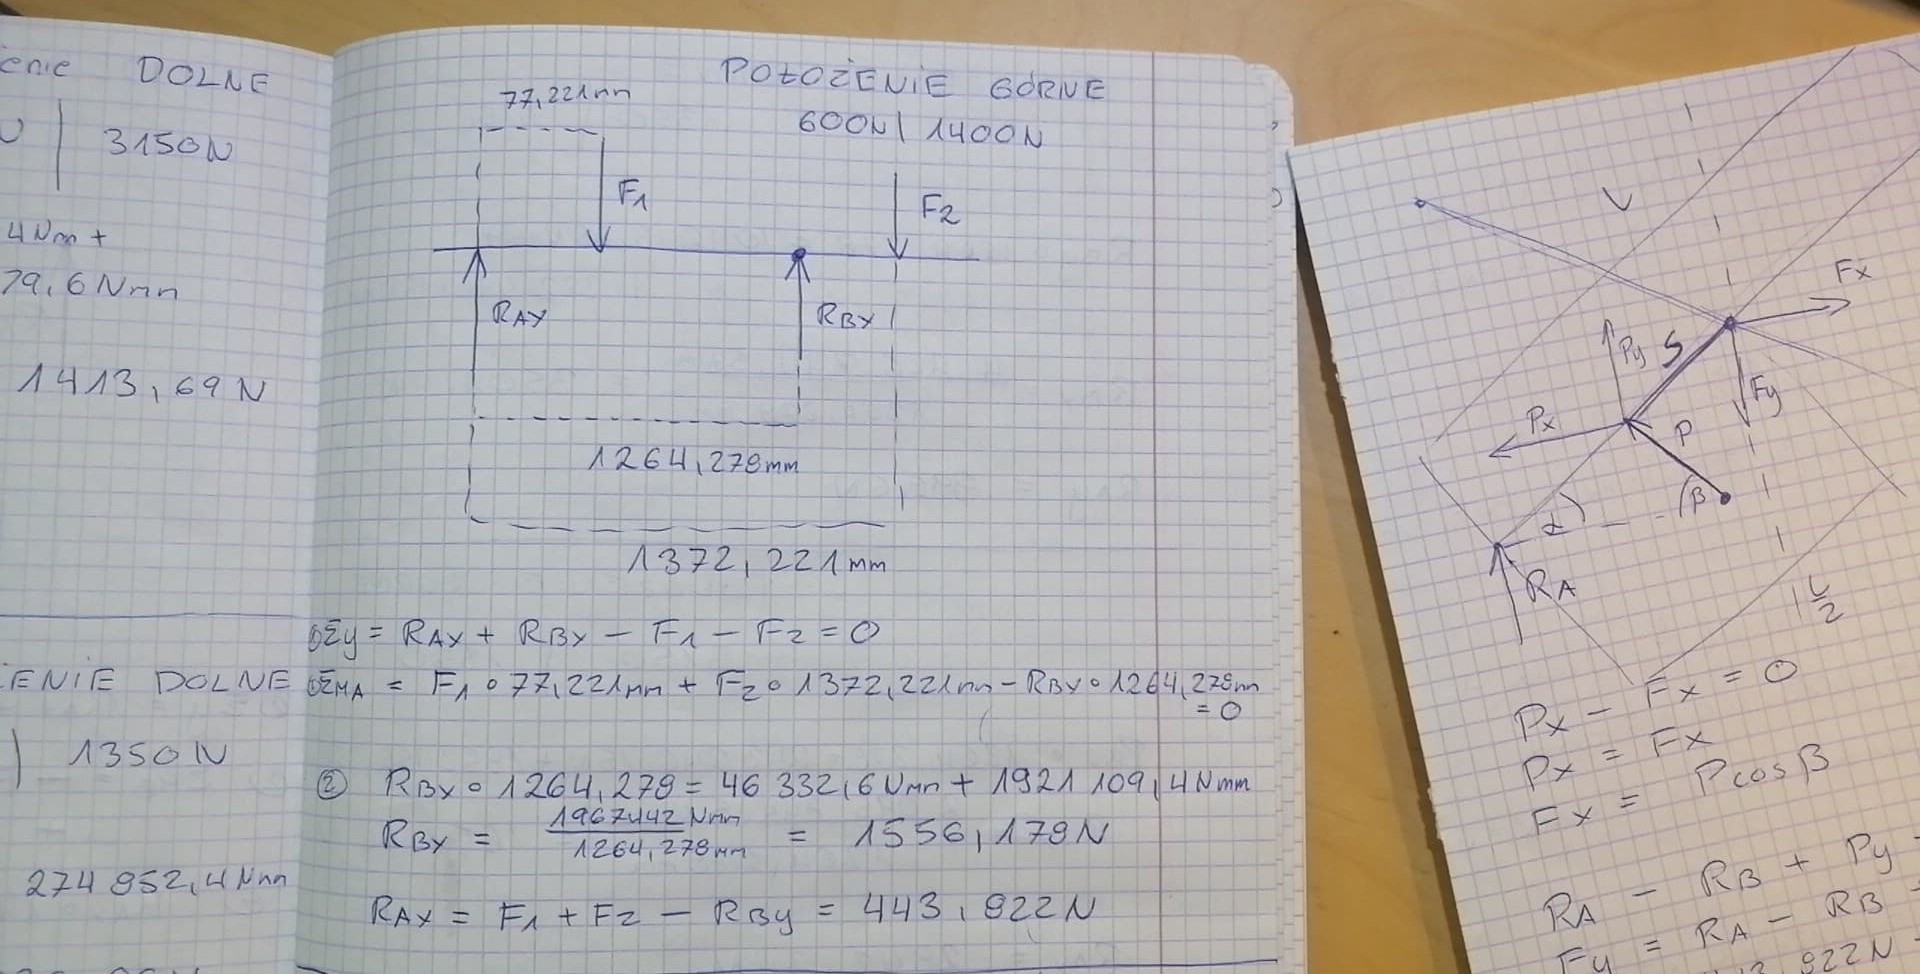 DOLNE
3150N
4Nmm +
79,6Nmm
1413,69N
ENIE DOLNE
1350N
274 952,4Nmm
POŁOŻENIE GÓRNE
600N | 1400N
77,221mm
F1
F2
RAY
RBY
1264,278mm
1372,221mm
Σy = RAY + RBY - F1 - F2 = 0
ΣMA = F1 ∘ 77,221mm + F2 ∘ 1372,221mm - RBY ∘ 1264,278mm
= 0
② RBY ∘ 1264,278 = 46 332,6Nmm + 1921 109,4Nmm
RBY = 1967442Nmm / 1264,278mm = 1556,178N
RAY = F1 + F2 - RBY = 443,822N
Fx
Py
S
Fy
Px
P
β
α
RA
L/2
Px - Fx = 0
Px = Fx
Fx = Pcosβ
RA - RB + Py
Fy = RA - RB
822N